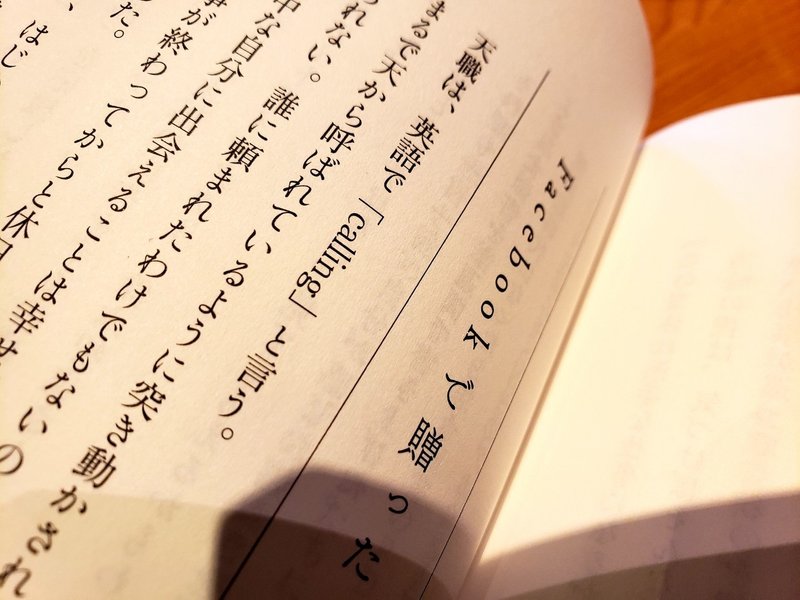 Facebookで贈った
天職は、英語で「calling」と言う。
まるで天から呼ばれているように突き動かされ
られない。誰に頼まれたわけでもないの
中な自分に出会えることは幸せ
が終わってからと休日
た。
、はじ